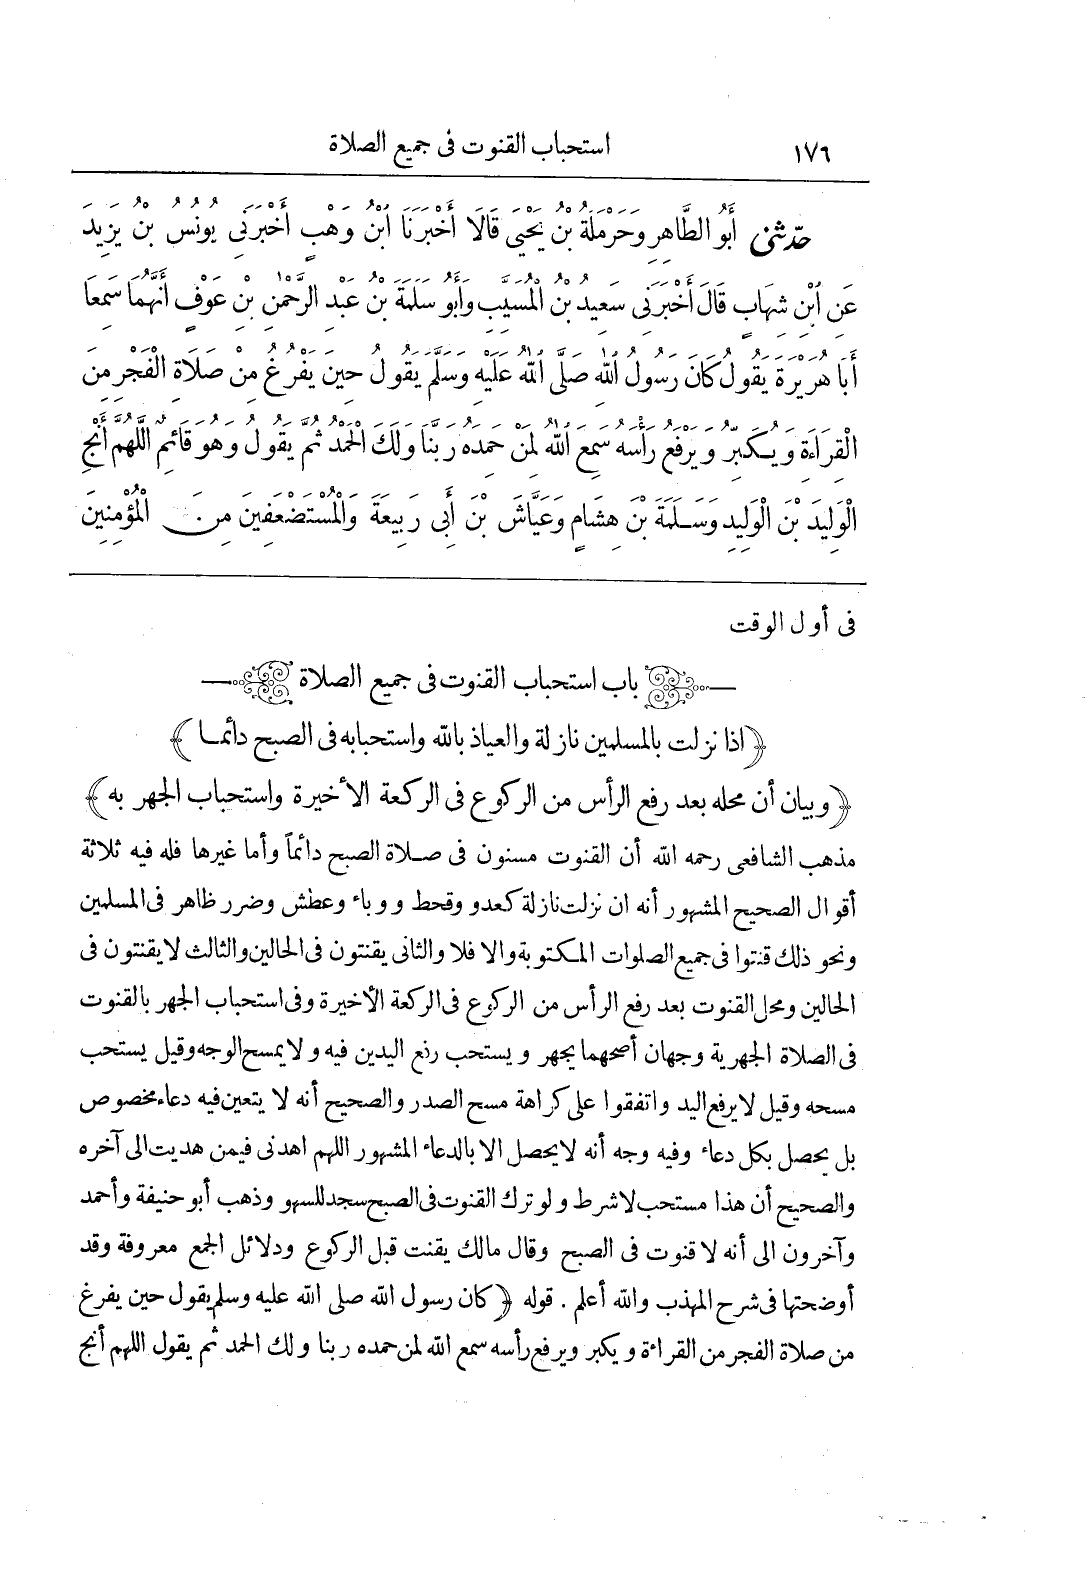 ١٧٦ استحباب القنوت فى جميع الصلاة
حَدَّثَنِى أَبُو الطَّاهِرِ وَحَرْمَلَةُ بْنُ يَحْيَى قَالَا أَخْبَرَنَا ابْنُ وَهْبٍ أَخْبَرَنِى يُونُسُ بْنُ يَزِيدَ
عَنِ ابْنِ شِهَابٍ قَالَ أَخْبَرَنِى سَعِيدُ بْنُ الْمُسَيِّبِ وَأَبُو سَلَمَةَ بْنُ عَبْدِ الرَّحْمٰنِ بْنِ عَوْفٍ أَنَّهُمَا سَمِعَا
أَبَا هُرَيْرَةَ يَقُولُ كَانَ رَسُولُ اللهِ صَلَّى اللهُ عَلَيْهِ وَسَلَّمَ يَقُولُ حِينَ يَفْرُغُ مِنْ صَلَاةِ الْفَجْرِ مِنَ
الْقِرَاءَةِ وَيُكَبِّرُ وَيَرْفَعُ رَأْسَهُ سَمِعَ اللهُ لِمَنْ حَمِدَهُ رَبَّنَا وَلَكَ الْحَمْدُ ثُمَّ يَقُولُ وَهُوَ قَائِمٌ اللّٰهُمَّ أَنْجِ
الْوَلِيدَ بْنَ الْوَلِيدِ وَسَلَمَةَ بْنَ هِشَامٍ وَعَيَّاشَ بْنَ أَبِى رَبِيعَةَ وَالْمُسْتَضْعَفِينَ مِنَ الْمُؤْمِنِينَ
فى أول الوقت
باب استحباب القنوت فى جميع الصلاة
﴿اذا نزلت بالمسلمين نازلة والعياذ بالله واستحبابه فى الصبح دائمـا﴾
﴿وبيان أن محله بعد رفع الرأس من الركوع فى الركعة الأخيرة واستحباب الجهر به﴾
مذهب الشافعى رحمه الله أن القنوت مسنون فى صـلاة الصبح دائماً وأما غيرها فله فيه ثلاثة
أقوال الصحيح المشهور أنه ان نزلت نازلة كعدو وقحط ووباء وعطش وضرر ظاهر فى المسلمين
ونحو ذلك قنتوا فى جميع الصلوات المكتوبة والا فلا والثانى يقنتون فى الحالين والثالث لا يقنتون فى
الحالين ومحل القنوت بعد رفع الرأس من الركوع فى الركعة الأخيرة وفى استحباب الجهر بالقنوت
فى الصلاة الجهرية وجهان أصحهما يجهر ويستحب رفع اليدين فيه ولا يمسح الوجه وقيل يستحب
مسحه وقيل لا يرفع اليد واتفقوا على كراهة مسح الصدر والصحيح أنه لا يتعين فيه دعاء مخصوص
بل يحصل بكل دعاء وفيه وجه أنه لا يحصل الا بالدعاء المشهور اللهم اهدنى فيمن هديت الى آخره
والصحيح أن هذا مستحب لا شرط ولو ترك القنوت فى الصبح سجد للسهو وذهب أبو حنيفة وأحمد
وآخرون الى أنه لا قنوت فى الصبح وقال مالك يقنت قبل الركوع ودلائل الجمع معروفة وقد
أوضحتها فى شرح المهذب والله أعلم . قوله ﴿كان رسول الله صلى الله عليه وسلم يقول حين يفرغ
من صلاة الفجر من القراءة ويكبر ويرفع رأسه سمع الله لمن حمده ربنا ولك الحمد ثم يقول اللهم أنج